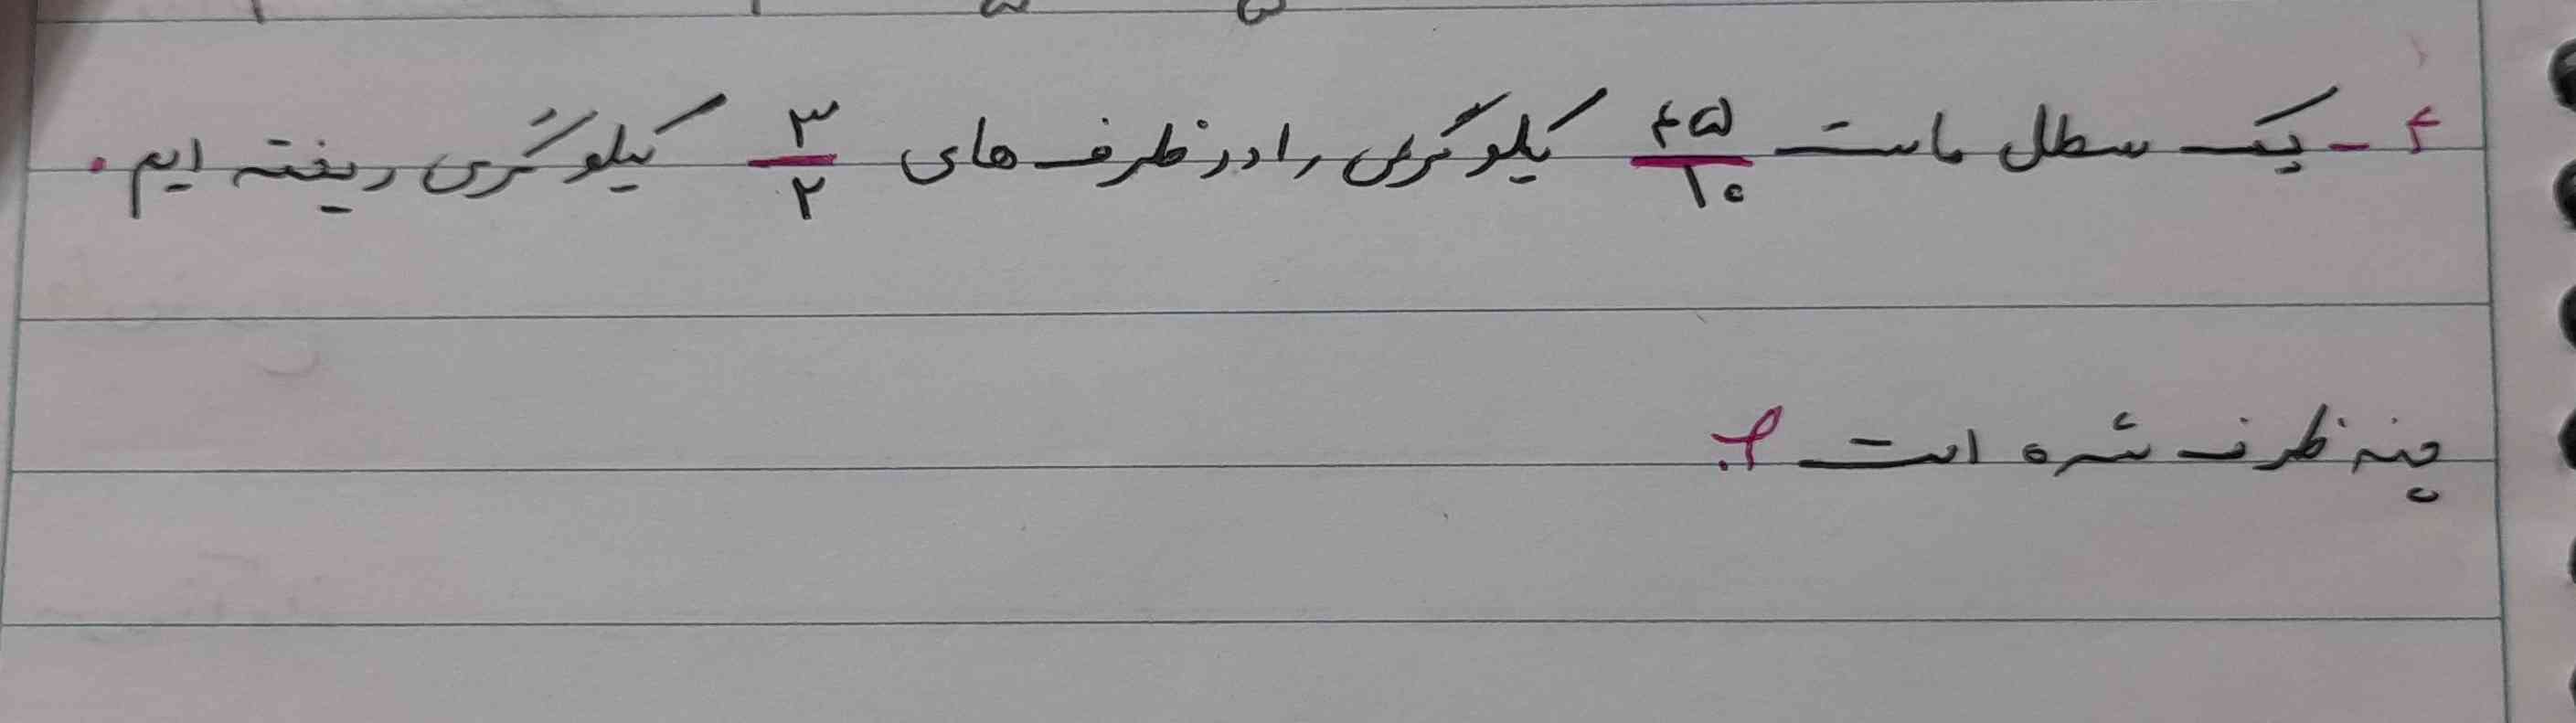 ۴ - یک سطل ماست ۴۵/۱۰ کیلوگرمی را در ظرف های ۳/۲ کیلوگرمی ریخته ایم.
چند ظرف شده است؟